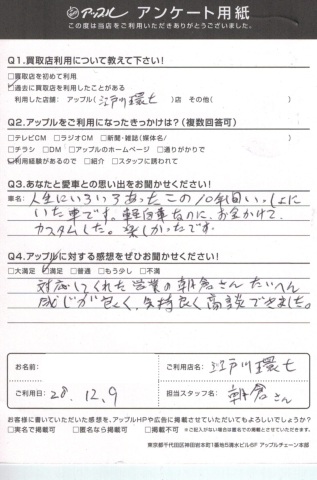 アップル アンケート用紙
この度は当店をご利用いただきありがとうございました。
Q1.買取店利用について教えて下さい!
□買取店を初めて利用
☑過去に買取店を利用したことがある
利用した店舗: アップル(江戸川環七)店 その他( )
Q2.アップルをご利用になったきっかけは?(複数回答可)
□テレビCM □ラジオCM □新聞・雑誌(媒体名/ )
□チラシ □DM □アップルのホームページ □通りがかりで
☑利用経験があるので □紹介 □スタッフに誘われて
Q3.あなたと愛車との思い出をお聞かせください!
車名: 人生にいろいろあったこの10年間いっしょに
いた車です。軽自動車なのに、お金かけて
カスタムした。楽しかったです。
Q4.アップルに対する感想をぜひお聞かせください!
□大満足 ☑満足 □普通 □もう少し □不満
対応してくれた営業の朝倉さん たいへん
感じが良く、気持良く商談できました。
お名前:
ご利用店名: 江戸川環七
ご利用日: 28.12.9
担当スタッフ名: 朝倉さん
お客様に書いていただいた感想を、アップルHPや広告に掲載させていただいてもよろしいでしょうか?
□実名で掲載可 □匿名なら掲載可 □掲載不可 ※ご記入がない場合は匿名での掲載とさせていただきます。
東京都千代田区神田岩本町1番地5清水ビル6F アップルチェーン本部